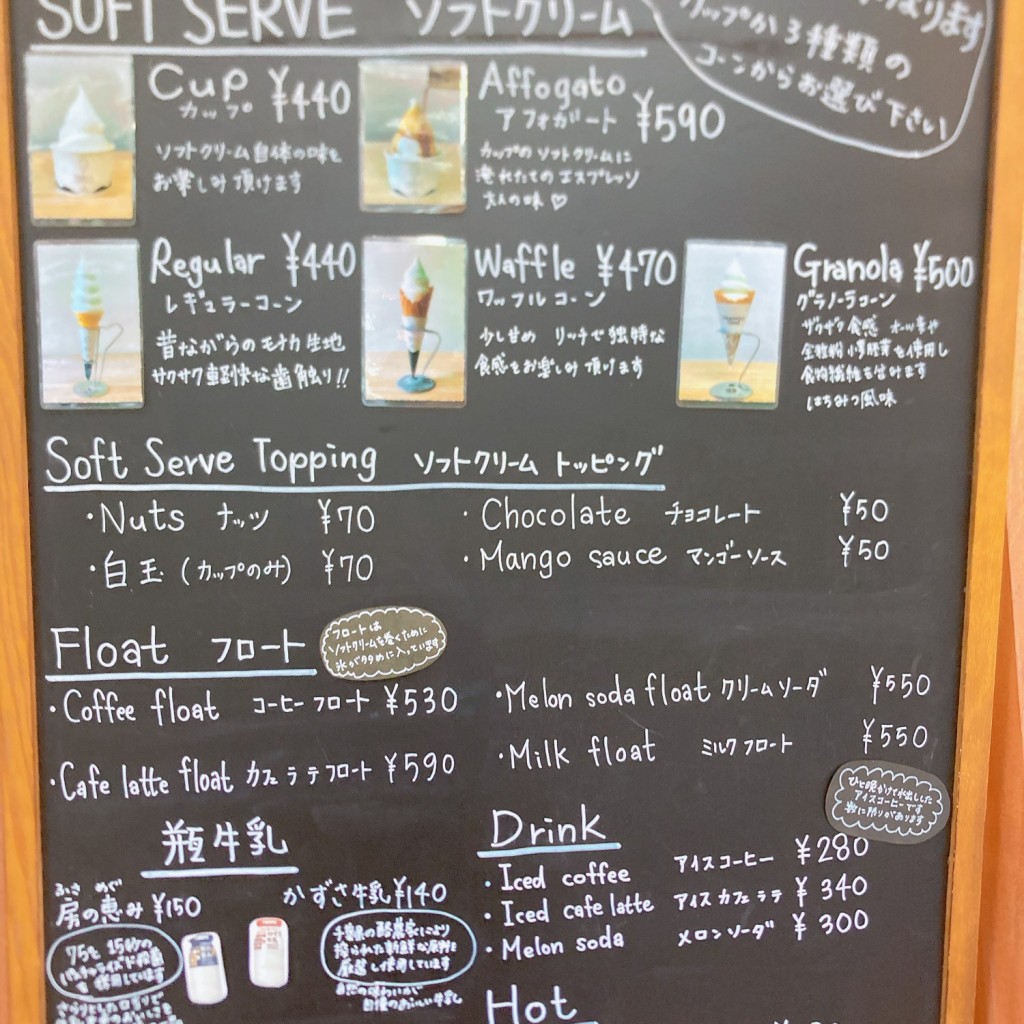 SOFT SERVE ソフトクリーム
なります
カップか3種類の
コーンからお選び下さい
Cup ¥440
カップ
ソフトクリーム自体の味を
お楽しみ頂けます
Affogato ¥590
アフォガート
カップのソフトクリームに
淹れたてのエスプレッソ
大人の味♡
Regular ¥440
レギュラーコーン
昔ながらのモナカ生地
サクサク軽快な歯触り!!
Waffle ¥470
ワッフルコーン
少し甘め リッチで独特な
食感をお楽しみ頂けます
Granola ¥500
グラノーラコーン
ザクザク食感 オーツ麦や
全粒粉 小麦胚芽を使用し
食物繊維も含みます
はちみつ風味
Soft Serve Topping ソフトクリーム トッピング
・Nuts ナッツ ¥70
・白玉 (カップのみ) ¥70
・Chocolate チョコレート ¥50
・Mango sauce マンゴーソース ¥50
Float フロート
フロートは
ソフトクリームを巻くために
氷が多めに入っています
・Coffee float コーヒーフロート ¥530
・Cafe latte float カフェラテフロート ¥590
・Melon soda float クリームソーダ ¥550
・Milk float ミルクフロート ¥550
ひと晩かけて水出しした
アイスコーヒーです
数に限りがあります
瓶牛乳
ふさ めぐ
房の恵み ¥150
75℃ 15秒の
パスチャライズド殺菌
を使用しています
さらりとした口当りで
かずさ牛乳 ¥140
千葉県の酪農家により
搾られた新鮮な原料を
厳選し使用しています
自然の味わいが
自慢のおいしい牛乳
Drink
・Iced coffee アイスコーヒー ¥280
・Iced cafe latte アイスカフェラテ ¥340
・Melon soda メロンソーダ ¥300
Hot